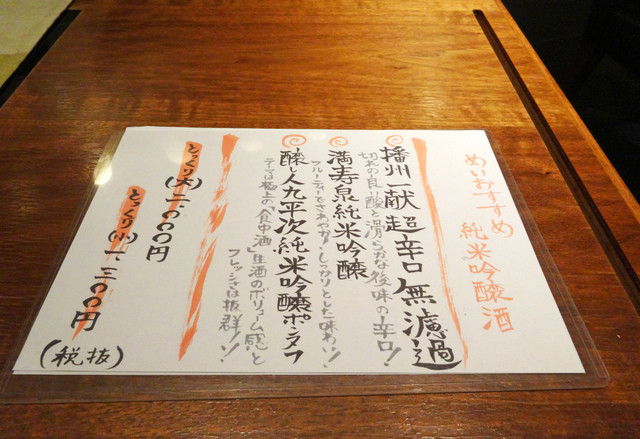 めいおすすめ
純米吟醸酒
播州一献超辛口無濾過
切れの良い酸と滑らかな後味の辛口!
満寿泉純米吟醸
フルーティーでさわやか!しっかりとした味わい!
醸し人九平次純米吟醸
テーマは極上の「食中酒」生酒のボリューム感と
フレッシュさは抜群!!
とっくり(大)二、〇〇〇円
とっくり(小)一、三〇〇円
(税抜)